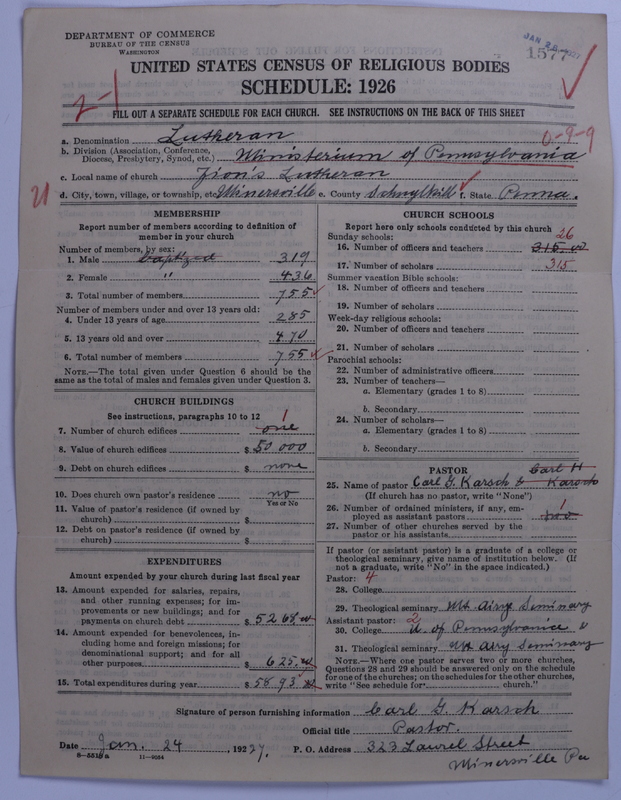 DEPARTMENT OF COMMERCE
BUREAU OF THE CENSUS
WASHINGTON
1577
UNITED STATES CENSUS OF RELIGIOUS BODIES
SCHEDULE: 1926
2-1
FILL OUT A SEPARATE SCHEDULE FOR EACH CHURCH. SEE INSTRUCTIONS ON THE BACK OF THIS SHEET
0-9-9
a. Denomination Lutheran
b. Division (Association, Conference, Diocese, Presbytery, Synod, etc.) Ministerium of Pennsylvania
c. Local name of church Zion's Lutheran
21
d. City, town, village, or township, etc. Minersville e. County Schuylkill f. State Penna.
MEMBERSHIP
Report number of members according to definition of
member in your church
Number of members, by sex:
1. Male baptized 319
2. Female " 436
3. Total number of members 755
Number of members under and over 13 years old:
4. Under 13 years of age 285
5. 13 years old and over 470
6. Total number of members 755
NOTE.—The total given under Question 6 should be the
same as the total of males and females given under Question 3.
CHURCH BUILDINGS
See instructions, paragraphs 10 to 12
7. Number of church edifices one 1
8. Value of church edifices $ 50 000
9. Debt on church edifices $ none
10. Does church own pastor's residence no
Yes or No
11. Value of pastor's residence (if owned by
church) $
12. Debt on pastor's residence (if owned by
church) $
EXPENDITURES
Amount expended by your church during last fiscal year
13. Amount expended for salaries, repairs,
and other running expenses; for im-
provements or new buildings; and for
payments on church debt $ 5268
14. Amount expended for benevolences, in-
cluding home and foreign missions; for
denominational support; and for all
other purposes $ 625
15. Total expenditures during year $ 5893
CHURCH SCHOOLS
Report here only schools conducted by this church
Sunday schools:
16. Number of officers and teachers 315 26
17. Number of scholars 315
Summer vacation Bible schools:
18. Number of officers and teachers
19. Number of scholars
Week-day religious schools:
20. Number of officers and teachers
21. Number of scholars
Parochial schools:
22. Number of administrative officers
23. Number of teachers—
a. Elementary (grades 1 to 8)
b. Secondary
24. Number of scholars—
a. Elementary (grades 1 to 8)
b. Secondary
PASTOR
Carl H
25. Name of pastor Carl G. Karsch & Karsch
(If church has no pastor, write "None")
26. Number of ordained ministers, if any, em-
ployed as assistant pastors 1
27. Number of other churches served by the
pastor or his assistants
If pastor (or assistant pastor) is a graduate of a college or
theological seminary, give name of institution below. (If
not a graduate, write "No" in the space indicated.)
Pastor: 4
28. College
29. Theological seminary Mt Airy Seminary
Assistant pastor: 2
30. College U. of Pennsylvania
31. Theological seminary Mt Airy Seminary
NOTE.—Where one pastor serves two or more churches,
Questions 28 and 29 should be answered only on the schedule
for one of the churches; on the schedules for the other churches,
write "See schedule for church."
Signature of person furnishing information Carl G. Karsch
Official title Pastor.
Date Jan. 24, 1927. P. O. Address 323 Laurel Street
8-5518a 11-9054
Minersville Pa